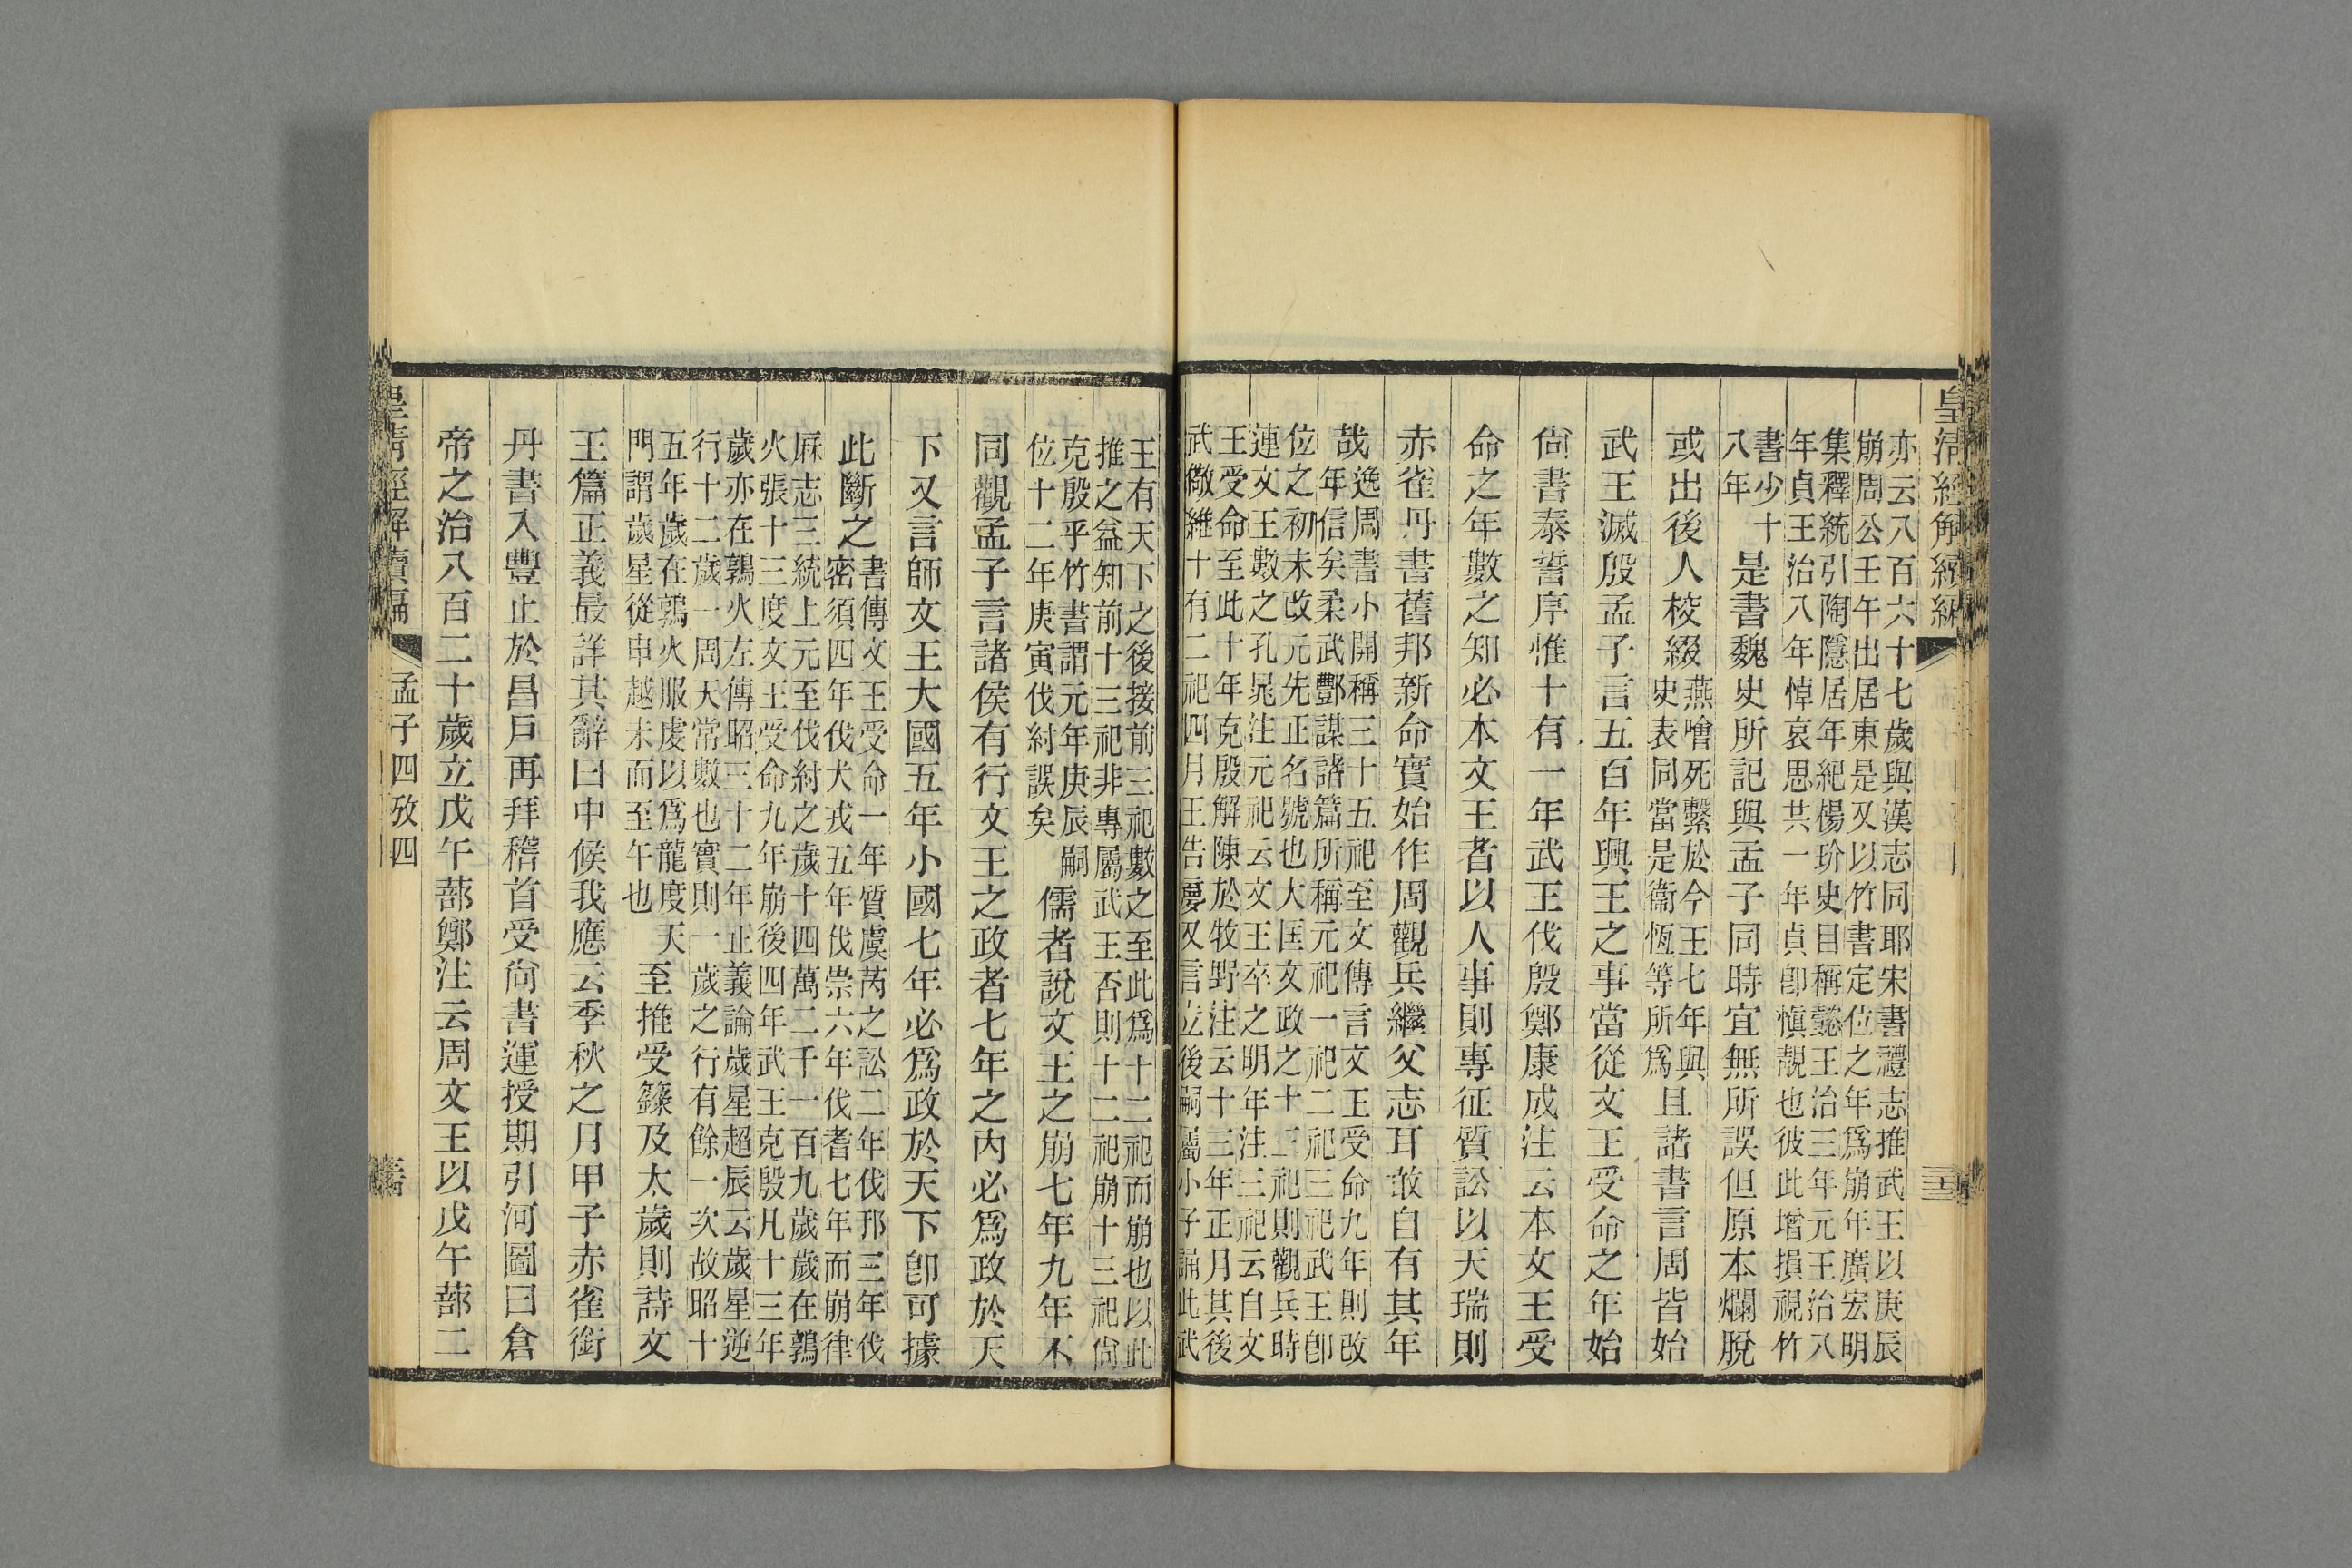 皇清經解續編
亦云八百六十七歲與漢志同耶宋書禮志推武王以庚辰
崩周公壬午出居東是又以竹書定位之年爲崩年廣宏明
集釋統引陶隱居年紀楊玠史目稱懿王治三年元王治八
年貞王治八年悼哀思共一年貞卽愼靚也彼此增損視竹
書少十
八年
是書魏史所記與孟子同時宜無所誤但原本爛脫
或出後人梭綴
燕噲死繫於今王七年與
史表同當是衞恆等所爲
且諸書言周皆始
武王滅殷孟子言五百年興王之事當從文王受命之年始
尙書泰誓序惟十有一年武王伐殷鄭康成注云本文王受
命之年數之知必本文王者以人事則專征質訟以天瑞則
赤雀丹書舊邦新命實始作周觀兵繼父志耳敢自有其年
哉
逸周書小開稱三十五祀至文傳言文王受命九年則改
年信矣柔武酆謀諸篇所稱元祀一祀二祀三祀武王卽
位之初未改元先正名號也大匡文政之十三祀則觀兵時
連文王數之孔晁注元祀云文王卒之明年注三祀云自文
王受命至此十年克殷解陳於牧野注云十三年正月其後
武儆維十有二祀四月王告夢又言立後嗣屬小子誦此武
王有天下之後接前三祀數之至此爲十二祀而崩也以此
推之益知前十三祀非專屬武王否則十二祀崩十三祀尙
克殷乎竹書謂元年庚辰嗣
位十二年庚寅伐紂誤矣
儒者說文王之崩七年九年不
同觀孟子言諸侯有行文王之政者七年之內必爲政於天
下又言師文王大國五年小國七年必爲政於天下卽可據
此斷之
書傳文王受命一年質虞芮之訟二年伐邘三年伐
密須四年伐犬戎五年伐崇六年伐耆七年而崩律
厤志三統上元至伐紂之歲十四萬二千一百九歲歲在鶉
火張十三度文王受命九年崩後四年武王克殷凡十三年
歲亦在鶉火左傳昭三十二年正義論歲星超辰云歲星逆
行十二歲一周天常數也實則一歲之行有餘一次故昭十
五年歲在鶉火服虔以爲龍度天
門謂歲星從申越未而至午也
至推受籙及太歲則詩文
王篇正義最詳其辭曰中候我應云季秋之月甲子赤雀銜
丹書入豐止於昌戶再拜稽首受尙書運授期引河圖曰倉
帝之治八百二十歲立戊午蔀鄭注云周文王以戊午蔀二
皇清經解續編
孟子四攷四